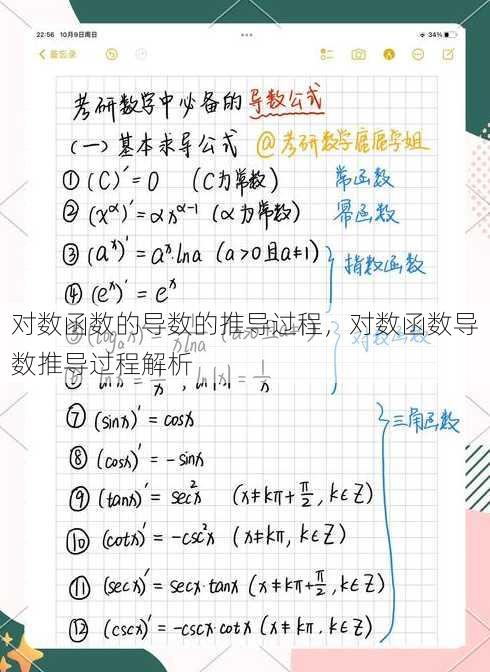 22:56 10月9日周日
34%
备忘录
考研数学中必备的导数公式
(一)基本求导公式 @考研数学鹿鹿学姐
①(C)′=0 (C为常数) 常函数
②(x^α)′=αx^(α-1) (α为常数) 幂函数
③(a^x)′=a^x·lna (a>0且a≠1) 指数函数
④(e^x)′=e^x
对数函数的导数的推导过程，对数函数导
数推导过程解析
⑦(sinx)′=cosx 三角函数
⑧(cosx)′=-sinx
⑨(tanx)′=sec²x (x≠kπ+π/2,k∈Z)
⑩(cotx)′=-csc²x (x≠kπ,k∈Z)
⑪(secx)′=secx·tanx (x≠kπ+π/2,k∈Z)
⑫(cscx)′=-cscx·cotx (x≠kπ.k∈Z)